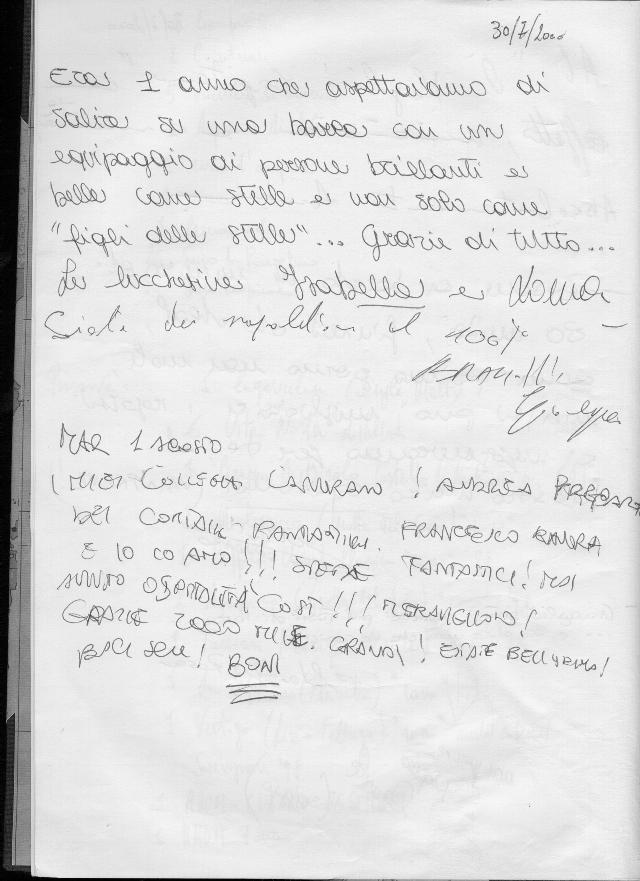 30/7/2000
Era 1 anno che aspettavamo di
salire su una barca con un
equipaggio di persone brillanti e
belle come stelle e non solo come
"figli delle stelle"... Grazie di tutto...
Le lucchesine Isabella e
Siete dei napoletani al 100%
BRAVI!!!
MAR 1 AGOSTO
I MIEI COLLEGHI LAVORANO! ANDREA PREPARA
DEI COCKTAIL FANTASTICI. FRANCESCO
E IO LO AMO!!! SIETE FANTASTICI! MAI
AVUTO OSPITALITÀ COSÌ!!! MERAVIGLIOSO!
GRAZIE 2000 MILE. GRANDI! ESTATE BELLISSIMA!
BACI BONI